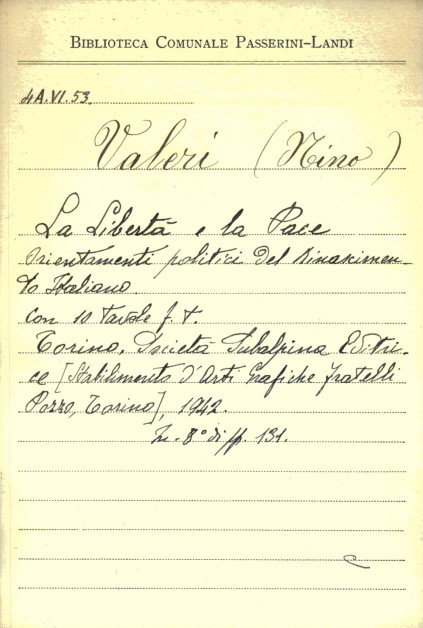 BIBLIOTECA COMUNALE PASSERINI-LANDI
4A.VI.53.
Valeri (Nino)
La Libertà e la Pace
Orientamenti politici del Rinascimen-
to Italiano.
con 10 tavole f. t.
Torino, Società Subalpina Editri-
ce [Stabilimento d'Arti Grafiche Fratelli
Pozzo, Torino], 1942.
In-8° di pp. 131.